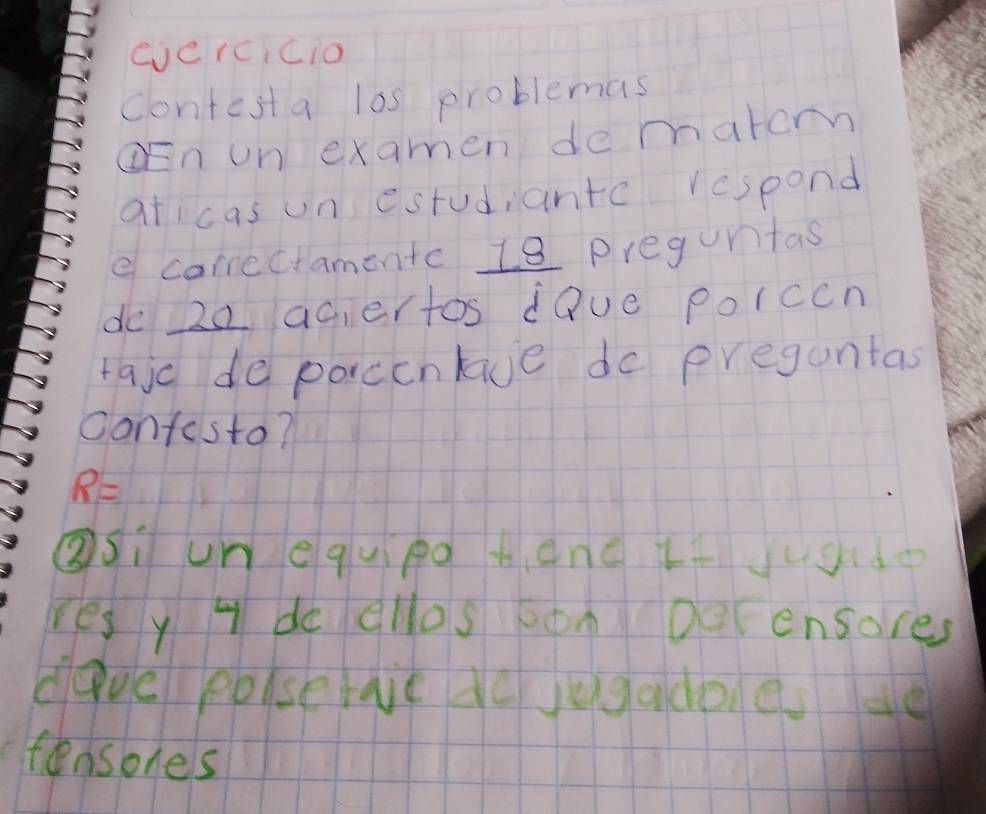 ejercicio
contesta los problemas
①En un examen de matem
aticas un estudiante respond
e correctamente 18 preguntas
de 20 aciertos ¿Que porcen
taje de porcentaje de preguntas
contesto?
R=
②Si un equipo tiene 11 jugado
res y 4 de ellos son Defensores
¿Que porsetaje de jugadores de
fensores